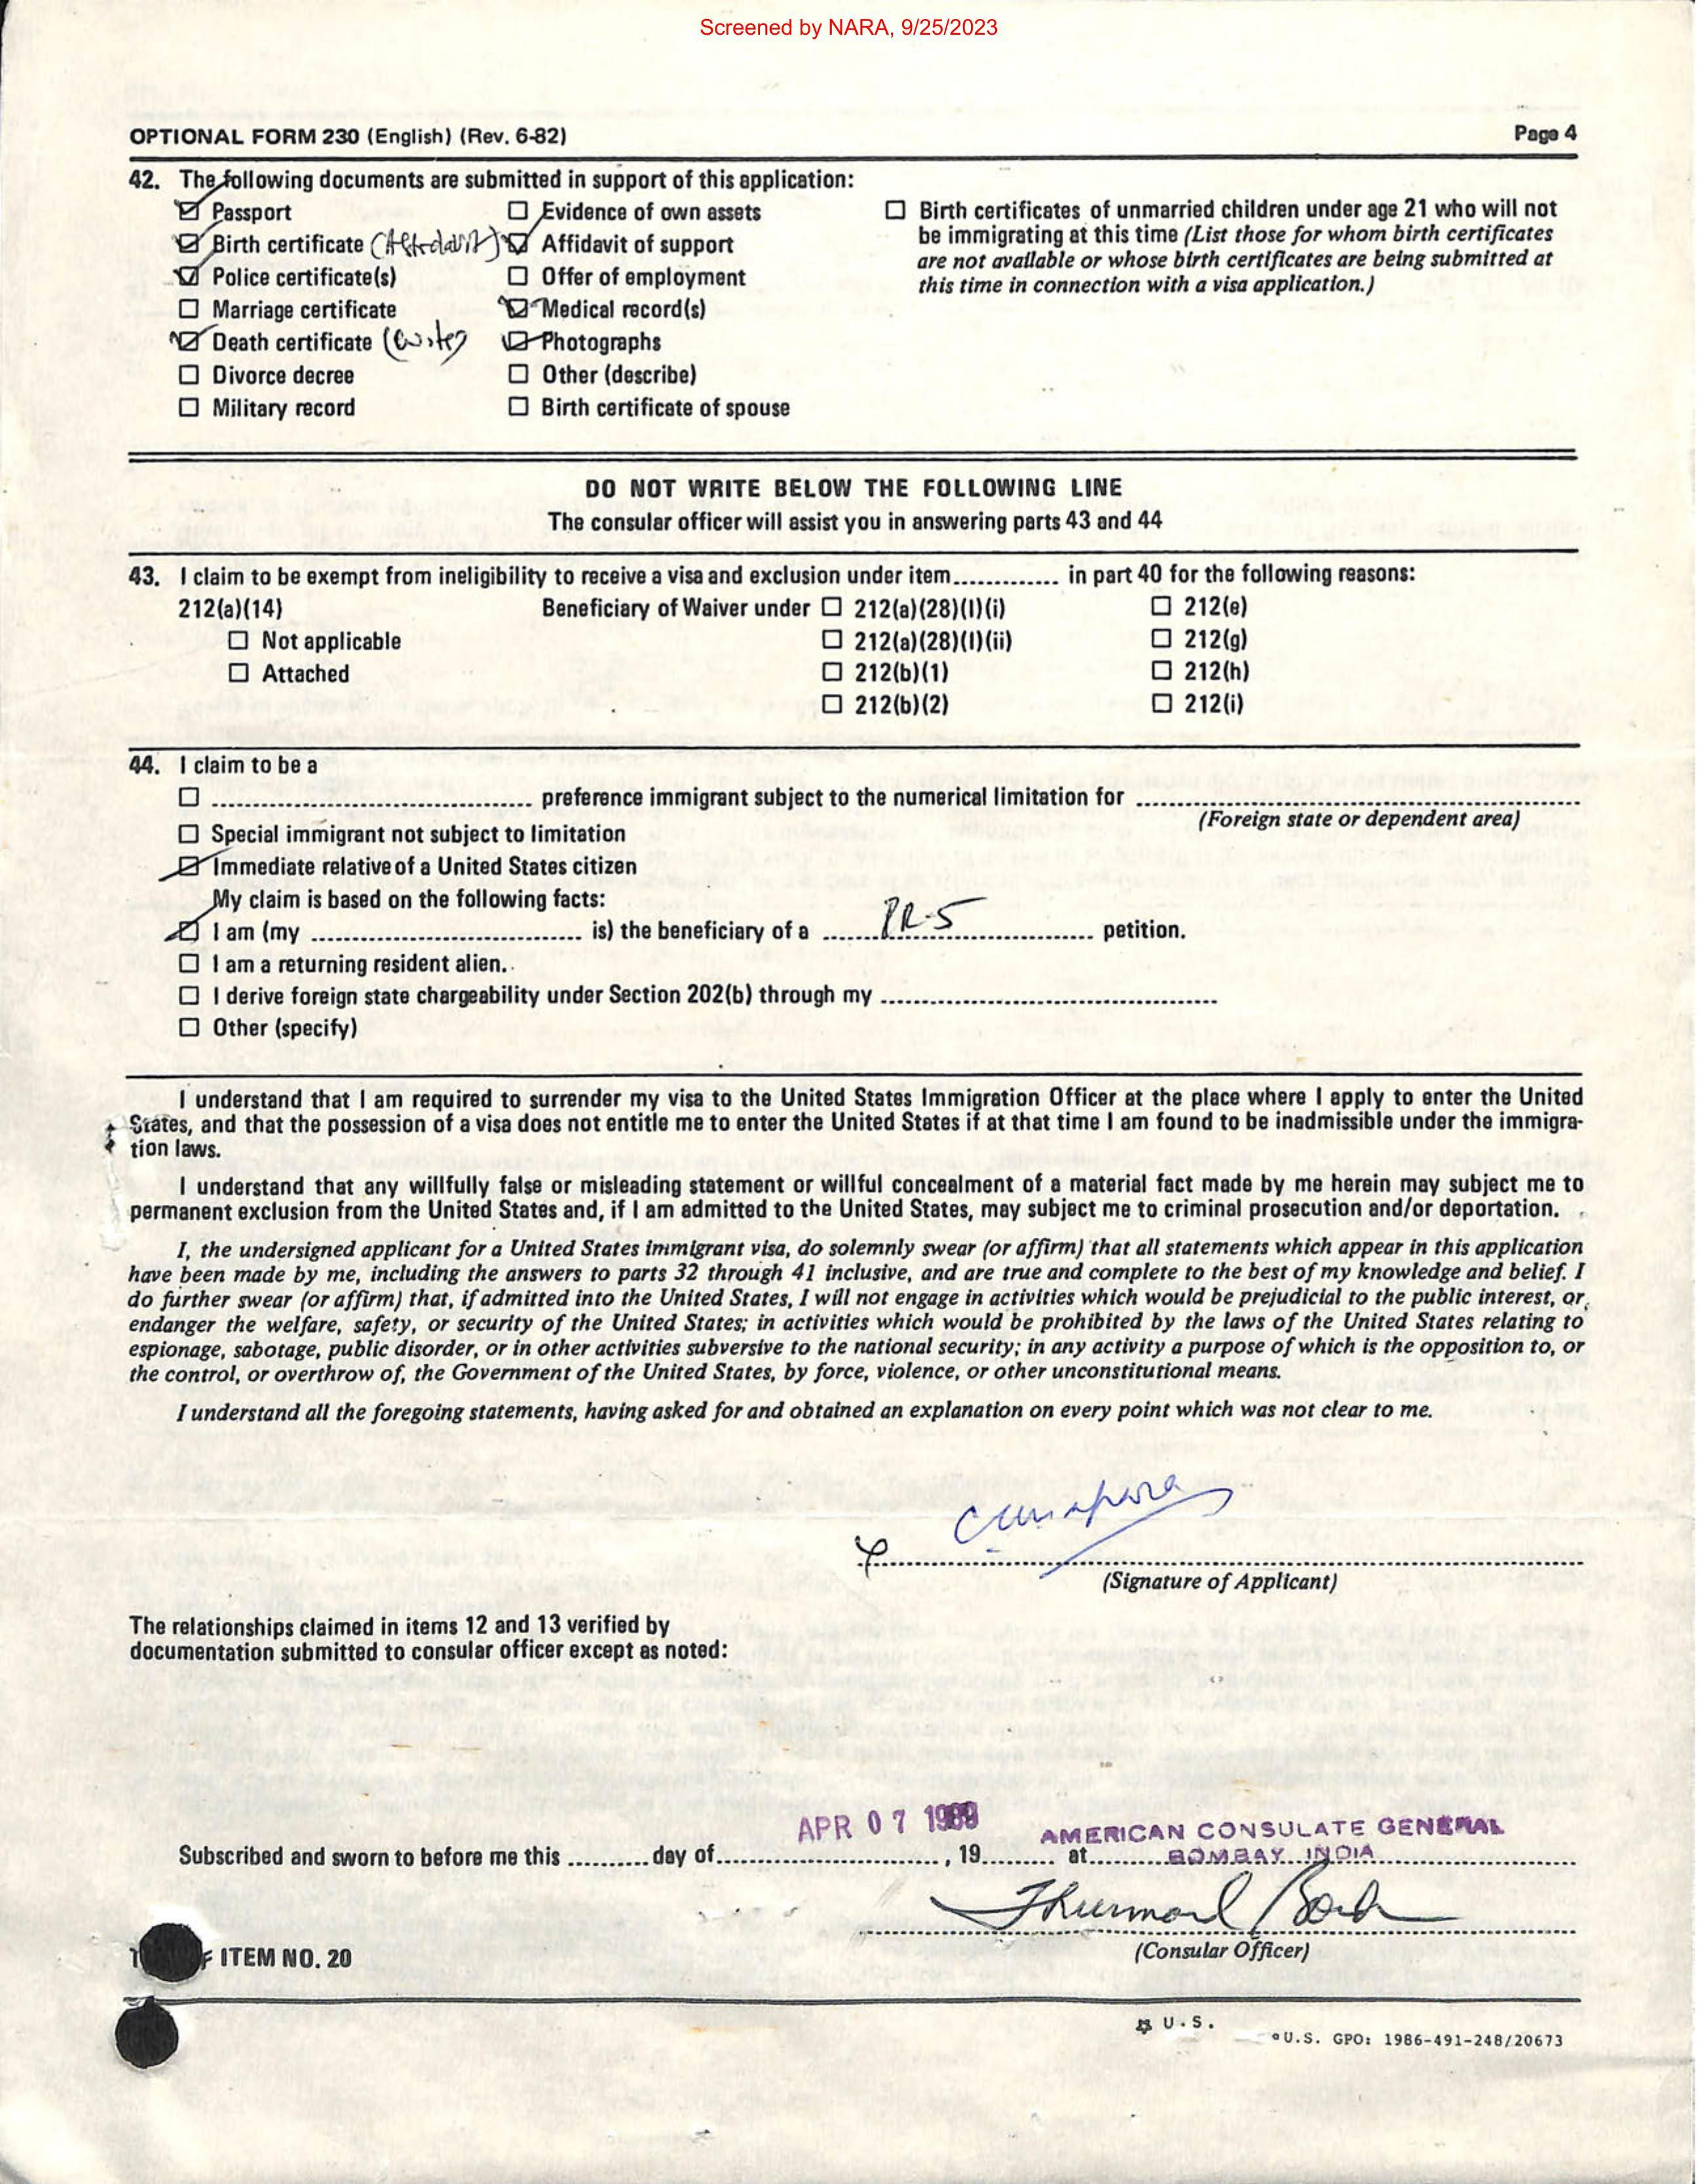 Screened by NARA, 9/25/2023
OPTIONAL FORM 230 (English) (Rev. 6-82) Page 4
42. The following documents are submitted in support of this application:
☑ Passport
☑ Birth certificate (Affidavit)
☑ Police certificate(s)
☐ Marriage certificate
☑ Death certificate (wife)
☐ Divorce decree
☐ Military record
☐ Evidence of own assets
☑ Affidavit of support
☐ Offer of employment
☑ Medical record(s)
☑ Photographs
☐ Other (describe)
☐ Birth certificate of spouse
☐ Birth certificates of unmarried children under age 21 who will not
be immigrating at this time (List those for whom birth certificates
are not available or whose birth certificates are being submitted at
this time in connection with a visa application.)
DO NOT WRITE BELOW THE FOLLOWING LINE
The consular officer will assist you in answering parts 43 and 44
43. I claim to be exempt from ineligibility to receive a visa and exclusion under item............. in part 40 for the following reasons:
212(a)(14) Beneficiary of Waiver under ☐ 212(a)(28)(I)(i) ☐ 212(e)
☐ Not applicable ☐ 212(a)(28)(I)(ii) ☐ 212(g)
☐ Attached ☐ 212(b)(1) ☐ 212(h)
☐ 212(b)(2) ☐ 212(i)
44. I claim to be a
☐ ........................................ preference immigrant subject to the numerical limitation for ........................................
(Foreign state or dependent area)
☐ Special immigrant not subject to limitation
☑ Immediate relative of a United States citizen
My claim is based on the following facts:
☑ I am (my .................................. is) the beneficiary of a ....... IR-5 ................. petition.
☐ I am a returning resident alien.
☐ I derive foreign state chargeability under Section 202(b) through my ..........................................
☐ Other (specify)
I understand that I am required to surrender my visa to the United States Immigration Officer at the place where I apply to enter the United
States, and that the possession of a visa does not entitle me to enter the United States if at that time I am found to be inadmissible under the immigra-
tion laws.
I understand that any willfully false or misleading statement or willful concealment of a material fact made by me herein may subject me to
permanent exclusion from the United States and, if I am admitted to the United States, may subject me to criminal prosecution and/or deportation.
I, the undersigned applicant for a United States immigrant visa, do solemnly swear (or affirm) that all statements which appear in this application
have been made by me, including the answers to parts 32 through 41 inclusive, and are true and complete to the best of my knowledge and belief. I
do further swear (or affirm) that, if admitted into the United States, I will not engage in activities which would be prejudicial to the public interest, or
endanger the welfare, safety, or security of the United States; in activities which would be prohibited by the laws of the United States relating to
espionage, sabotage, public disorder, or in other activities subversive to the national security; in any activity a purpose of which is the opposition to, or
the control, or overthrow of, the Government of the United States, by force, violence, or other unconstitutional means.
I understand all the foregoing statements, having asked for and obtained an explanation on every point which was not clear to me.
(Signature of Applicant)
The relationships claimed in items 12 and 13 verified by
documentation submitted to consular officer except as noted:
APR 07 1989 AMERICAN CONSULATE GENERAL
Subscribed and sworn to before me this ..........day of............................, 19......... at.......... BOMBAY INDIA
Thurmond
(Consular Officer)
ITEM NO. 20
U.S.
U.S. GPO: 1986-491-248/20673